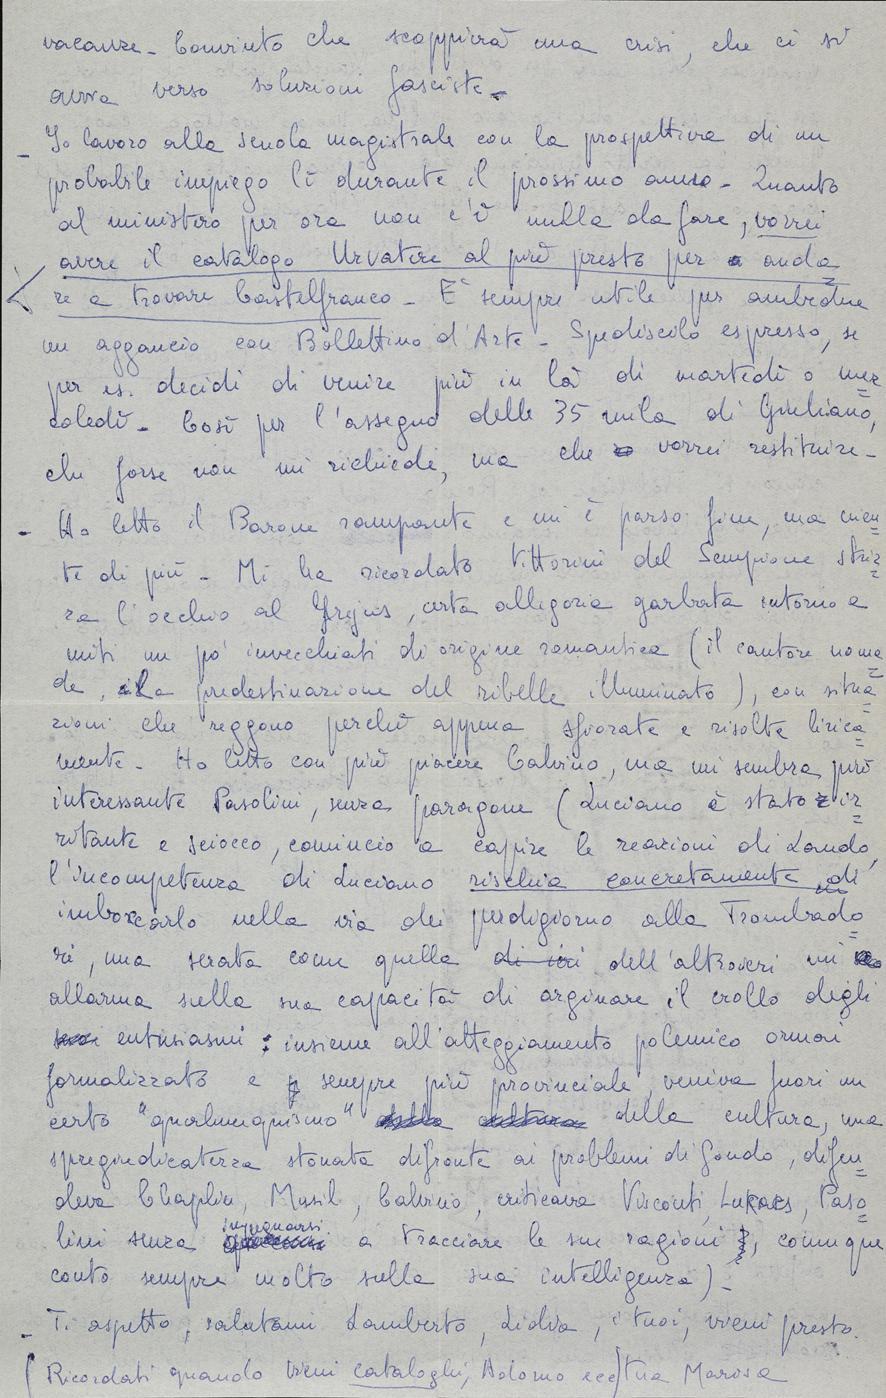 vacanze - Convinto che scoppierà una crisi, che ci si
avvia verso soluzioni fasciste -
- Io lavoro alla scuola magistrale con la prospettiva di un
probabile impiego lì durante il prossimo anno - Quanto
al ministero per ora non c'è nulla da fare, vorrei
avere il catalogo Urvater al più presto per anda
re a trovare Castelfranco - E' sempre utile per ambedue
un aggancio con Bollettino d'Arte - Spediscilo espresso, se
per es. decidi di venire più in là di martedì o mer
coledì - Così per l'assegno delle 35 mila di Giuliano,
che forse non mi richiede, ma che vorrei restituire -
- Ho letto il Barone rampante e mi è parso fine, ma nien
te di più - Mi ha ricordato Vittorini del Sempione striz
za l'occhio al Frejus, certa allegoria garbata intorno a
miti un po' invecchiati di origine romantica (il cantore noma
de, la predestinazione del ribelle illuminato), con situa
zioni che reggono perché appena sfiorate e risolte lirica
mente - Ho letto con più piacere Calvino, ma mi sembra più
interessante Pasolini, senza paragone (Luciano è stato ir
ritante e sciocco, comincio a capire le reazioni di Lando,
l'incompetenza di Luciano rischia concretamente di
imboccarlo nella via dei perdigiorno alla Trombado
ri, una serata come quella di ieri dell'altroieri mi
allarma sulla sua capacità di arginare il crollo degli
entusiasmi: insieme all'atteggiamento polemico ormai
formalizzato e sempre più provinciale, veniva fuori un
certo "qualunquismo" della cultura, una
spregiudicatezza stonata difronte ai problemi di fondo, difen
deva Chaplin, Musil, Calvino, criticava Visconti, Lukacs, Paso
lini senza impegnarsi a tracciare le sue ragioni, comunque
conto sempre molto sulla sua intelligenza) -
- Ti aspetto, salutami Lamberto, Lidia, i tuoi, vieni presto.
(Ricordati quando vieni cataloghi, Adorno ecc) tua Marisa